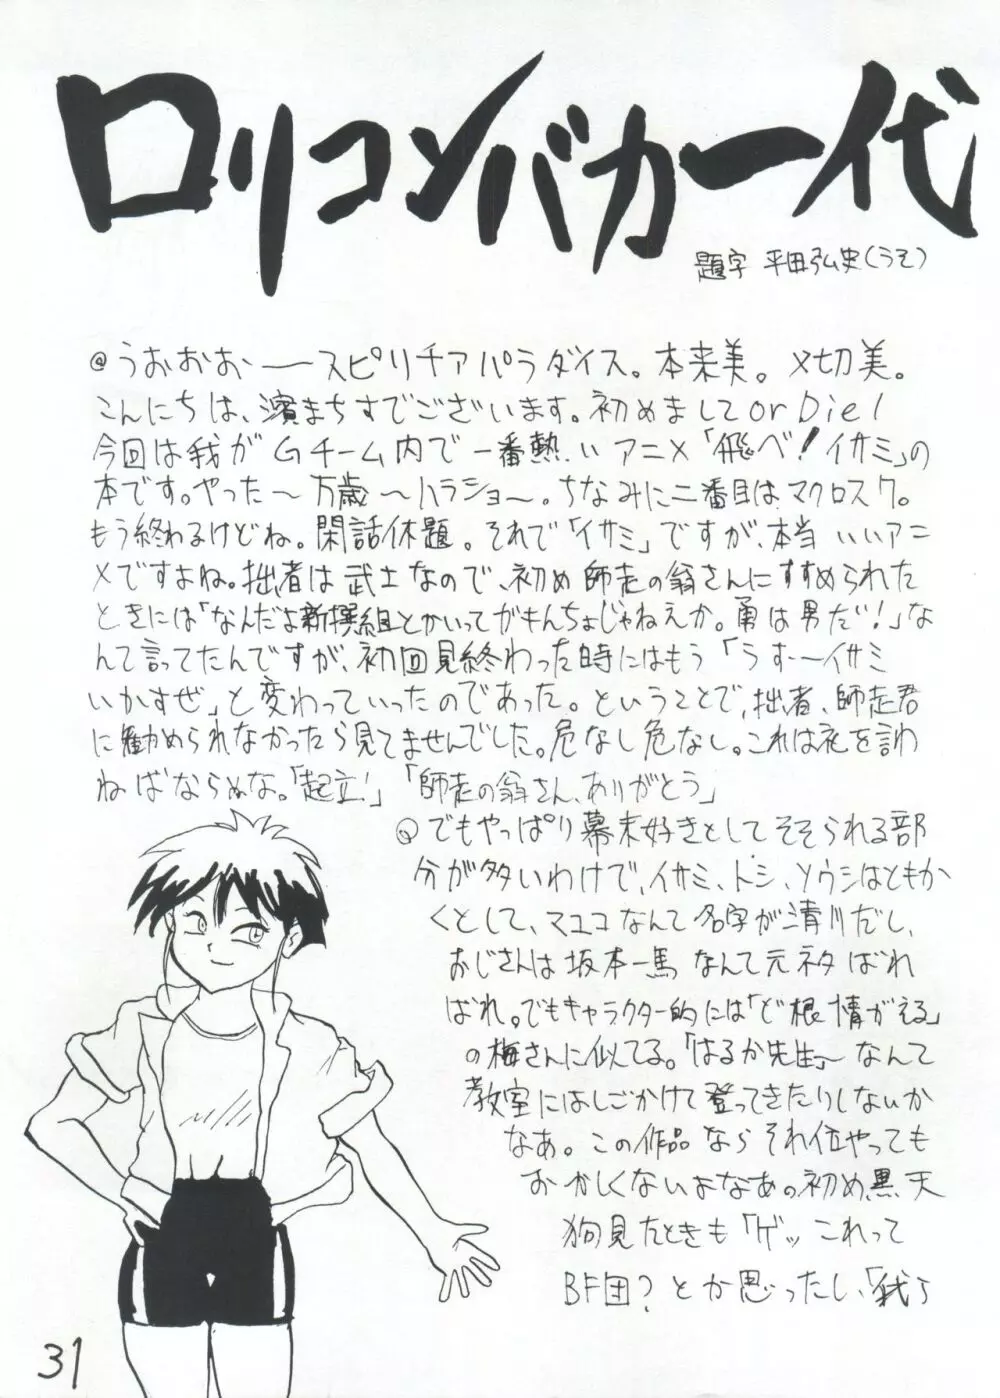 ロリコンバカ一代
題字 平田弘史(うそ)
@うおおおーースピリチアパラダイス。本来美。〆切美。
こんにちは、濱まちすでございます。初めましてorDie!
今回は我がGチーム内で一番熱いアニメ「飛べ!イサミ」の
本です。やった〜万歳〜ハラショ〜。ちなみに二番目はマクロス7。
もう終わるけどね。閑話休題。それで「イサミ」ですが、本当いいアニ
メですよね。拙者は武士なので、初め師走の翁さんにすすめられた
ときには「なんだよ新撰組とかいってがきんちょじゃねえか。勇は男だ!」な
んて言ってたんですが、初回見終わった時にはもう「うすーイサミ
いかすぜ」と変わっていったのであった。ということで、拙者、師走君
に勧められなかったら見てませんでした。危なし危なし。これは礼を言わ
ねばならぬな。「起立」「師走の翁さん、ありがとう」
@でもやっぱり幕末好きとしてそそられる部
分が多いわけで、イサミ、トシ、ソウシはともか
くとして、マユコなんて名字が清川だし、
おじさんは坂本一馬なんて元ネタばれ
ばれ。でもキャラクター的には「ど根情がえる」
の梅さんに似てる。「はるか先生〜なんて
教室にはしごかけて登ってきたりしないか
なあ。この作品ならそれ位やっても
おかしくないよなあ。初め黒天
狗見たときも「ゲッこれって
BF団?とか思ったし、「我ら
31